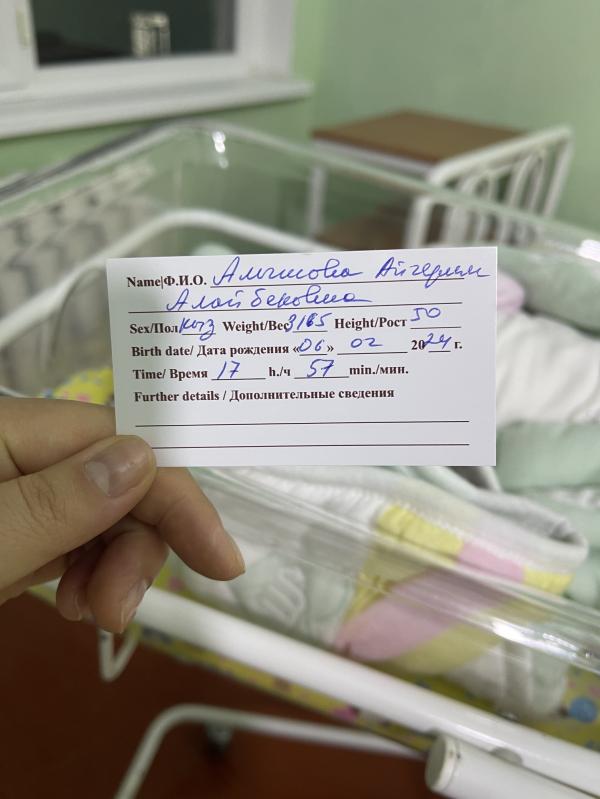 Name|Ф.И.О. Алымова Айгерим
Алайбековна
Sex/Пол кыз Weight/Вес 3165 Height/Рост 50
Birth date/ Дата рождения «06» 02 2024 г.
Time/ Время 17 h./ч 57 min./мин.
Further details / Дополнительные сведения